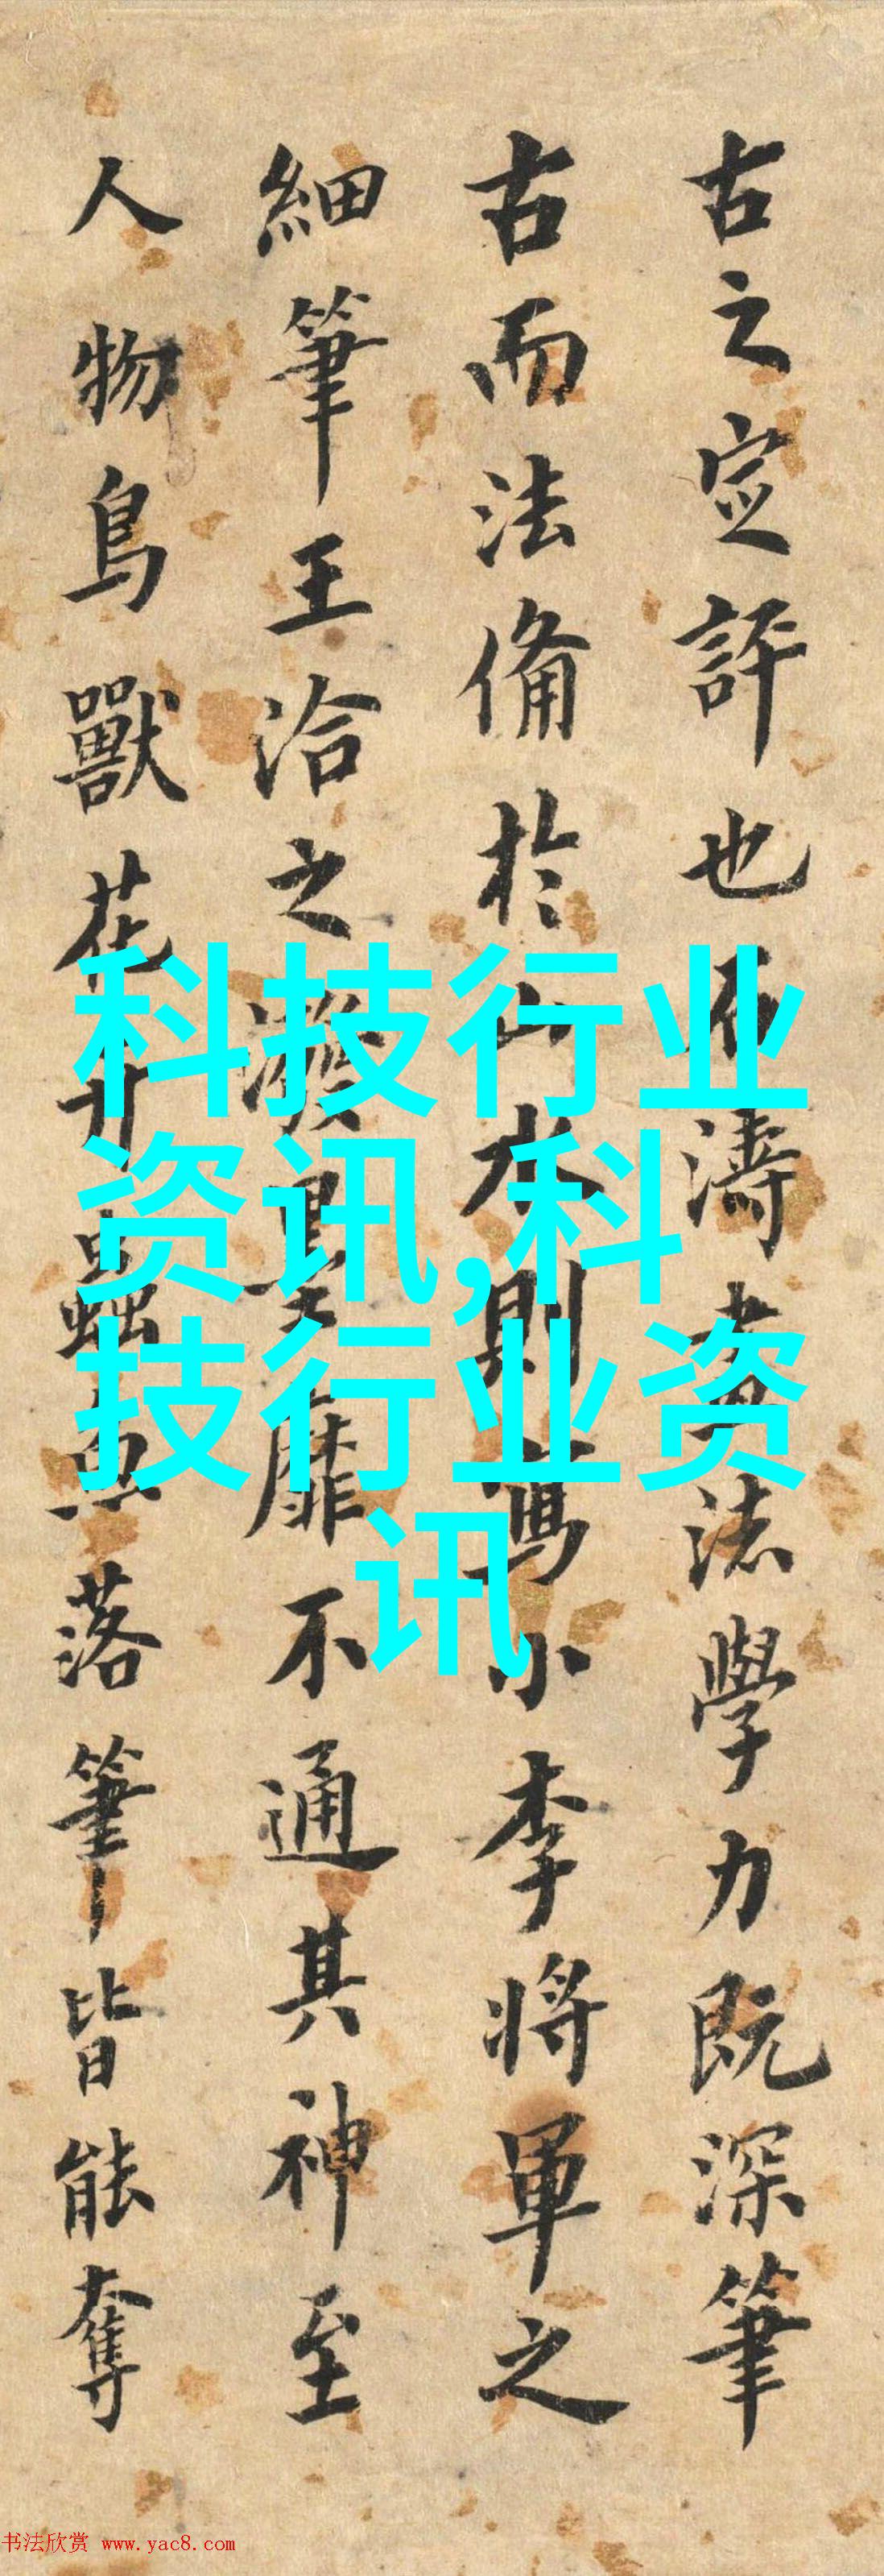 古之定評也石濤法學力既深筆
古而法備於山水則寫小李將軍之
細筆王洽之潑墨靡不通其神至
人物鳥獸花卉蟲魚落筆皆能奪
科技行业
资讯,科
技行业资
讯
书法欣赏 www.yac8.com